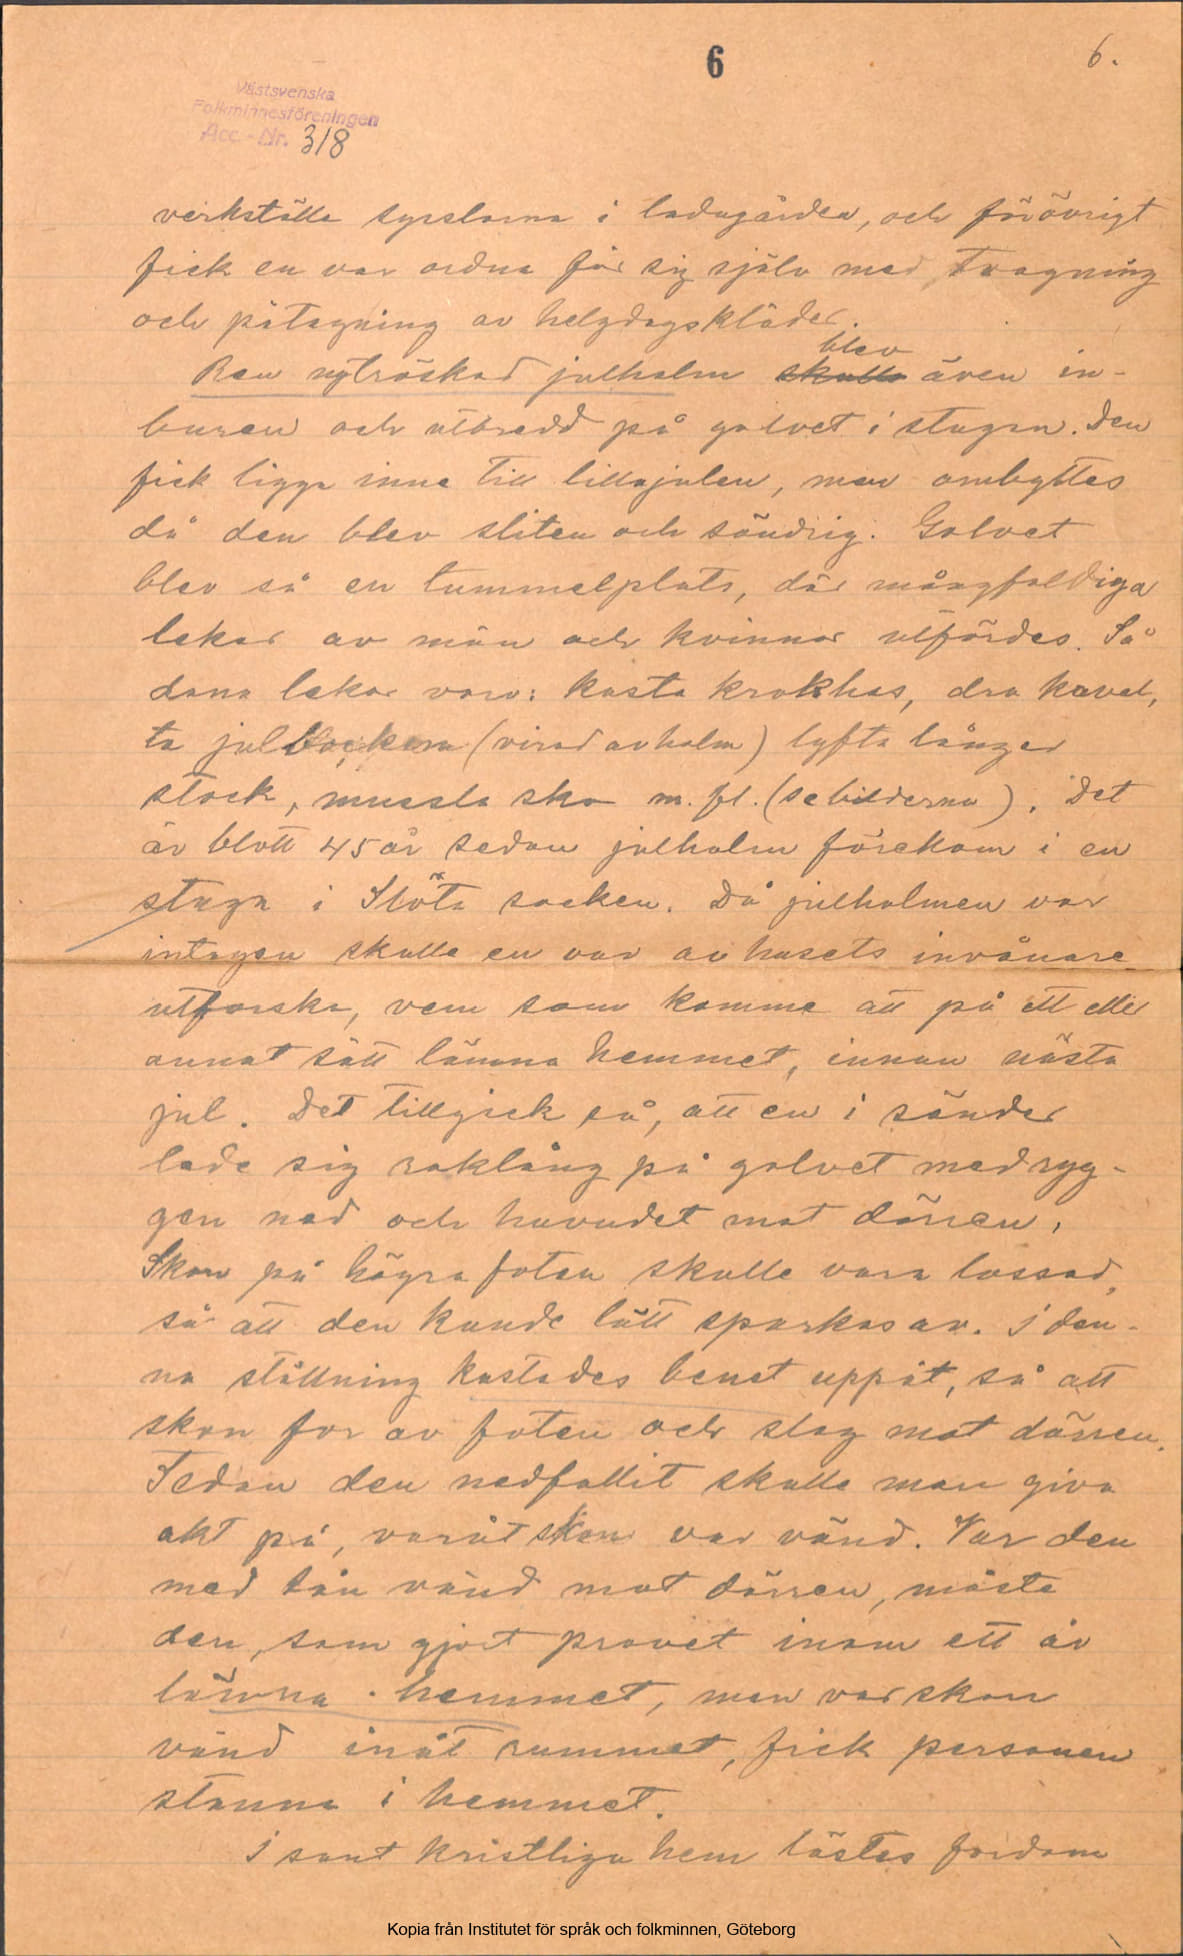 6
6.
Västsvenska
Folkminnesföreningen
Acc.-Nr. 318
verkställa sysslorna i ladugården, och förövrigt
fick en var ordna för sig själv med tvagning
och påtagning av helgdagskläder.
blev
Ren nytröskad julhalm skulle även in-
buren och utbredd på golvet i stugan. Den
fick ligga inne till lillajulen, men ombyttes
då den blev sliten och söndrig. Golvet
blev så en tummelplats, där mångfaldiga
lekar av män och kvinnor utfördes. Så
dana lekar voro: kasta krokhas, dra kavel,
ta julbocken (virad av halm) lyfta långer
stock, mussla sko m. fl. (se bilderna). Det
är blott 45 år sedan julhalm förekom i en
stuga i Slöta socken. Då julhalmen var
intagen skulle en var av husets invånare
utforska, vem som komme att på ett eller
annat sätt lämna hemmet, innan nästa
jul. Det tillgick så, att en i sänder
lade sig raklång på golvet med ryg-
gen ned och huvudet mot dörren.
Skon på högra foten skulle vara lossad,
så att den kunde lätt sparkas av. I den-
na ställning kastades benet uppåt, så att
skon for av foten och slog mot dörren.
Sedan den nedfallit skulle man giva
akt på, varåt skon var vänd. Var den
med tån vänd mot dörren, måste
den, som gjort provet inom ett år
lämna hemmet, men var skon
vänd inåt rummet, fick personen
stanna i hemmet.
I sant kristliga hem lästes fordom
Kopia från Institutet för språk och folkminnen, Göteborg